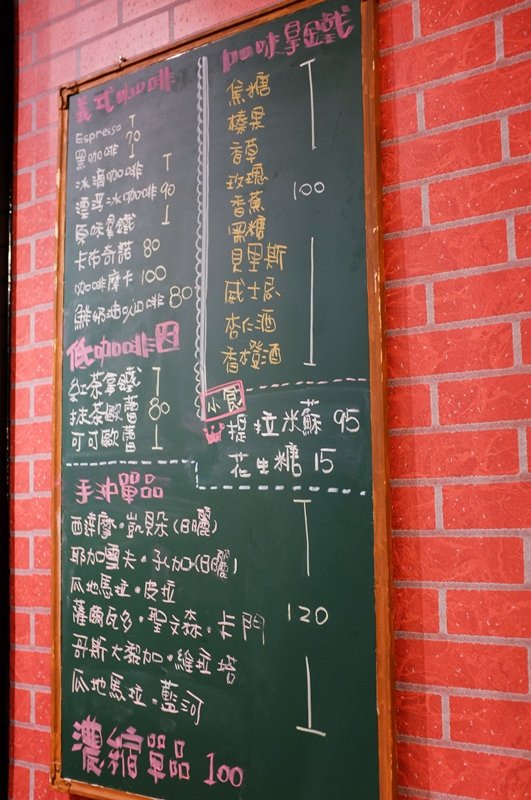 義式咖啡
Espresso
黑咖啡 70
冰滴咖啡
漂浮冰咖啡 90
原味拿鐵
卡布奇諾 80
咖啡摩卡 100
鮮奶油咖啡 80
低咖啡因
紅茶拿鐵
抹茶歐蕾 80
可可歐蕾
咖啡拿鐵
焦糖
榛果
香草
玫瑰 100
香蕉
黑糖
貝里斯
威士忌
杏仁酒
香橙酒
小食
提拉米蘇 95
花生糖 15
手沖單品
西達摩・凱貝朵(日曬)
耶加雪夫・孔加(日曬)
瓜地馬拉・皮拉
薩爾瓦多・聖文森・卡門 120
哥斯大黎加・維拉塔
瓜地馬拉・藍河
濃縮單品 100